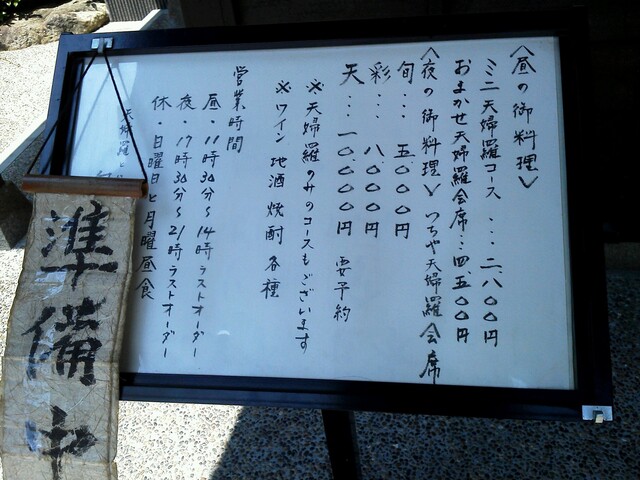 〈昼の御料理〉
ミニ天婦羅コース…二、八〇〇円
おまかせ天婦羅会席…四、五〇〇円
〈夜の御料理〉つちや天婦羅会席
旬…五、〇〇〇円
彩…八、〇〇〇円
天…一〇、〇〇〇円 要予約
※天婦羅のみのコースもございます
※ワイン 地酒 焼酎 各種
営業時間
昼・11時30分〜14時ラストオーダー
夜・17時30分〜21時ラストオーダー
休・日曜日と月曜昼食
天婦羅
準備中